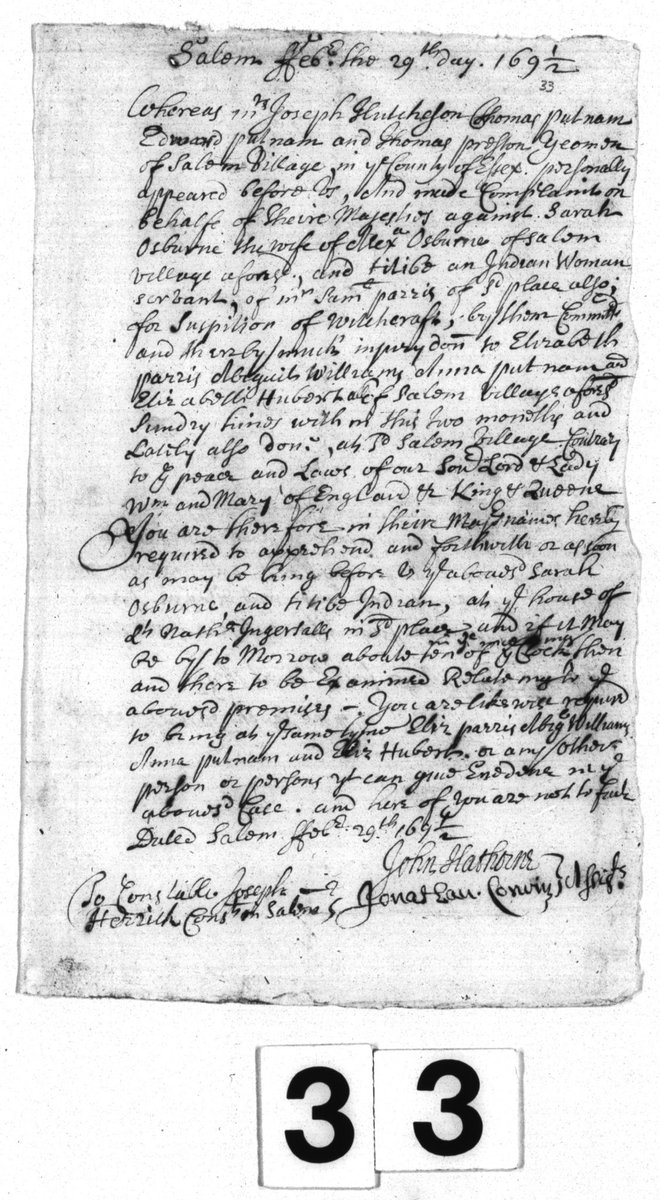 Salem ffebʳ. the 29ᵗʰ day. 169½
33
Whereas mʳˢ Joseph Hutcheson Thomas putnam
Edward putnam and Thomas preston Yeomen
of Salem Village, in yᵉ County of Essex. personally
appeared before Us, And made Complaint on
behalfe of theire Majesties against Sarah
Osburne the wife of Alexᵃ Osburne of Salem
village aforesᵈ, and titibe an Indian Woman
servant, of mʳ Samˡ parris of sᵈ place also;
for Suspition of Witchcraft, by them Committed
and thereby much injury don to Elizabeth
parris Abigail Williams Anna putnam and
Elizabeth Hubert all of Salem village aforesᵈ
Sundry times with in this two moneths and
Lately also don, at sᵈ Salem Village Contrary
to yᵉ peace and Laws of our Souʳ Lord & Lady
Wᵐ and Mary of England &c King & Queene
You are there fore in theire Majˢ names hereby
required to apprehend and forthwith or as soon
as may be bring before Us yᵉ abouesᵈ Sarah
Osburne, and titibe Indian, at yᵉ house of
Lᵗ Nathˡ Ingersalls in sᵈ place and if it May
be by to Morrow aboute ten of yᵉ Clock then
and there to be Examined Relateing to yᵉ
abouesᵈ premises — You are likewise required
to bring at yᵉ same tyme Eliz parris Abigˡ Williams
Anna putnam and Eliz Hubert. or any other
person or persons yᵗ can giue Euedence in yᵉ
abouesᵈ Case. and here of You are not to faile
Dated Salem ffebʳ 29ᵗʰ 169½
John Hathorne
Jonathan. Corwin } Assisᵗˢ
To Constable Joseph
Herrick Consᵗ in Salem
3 3